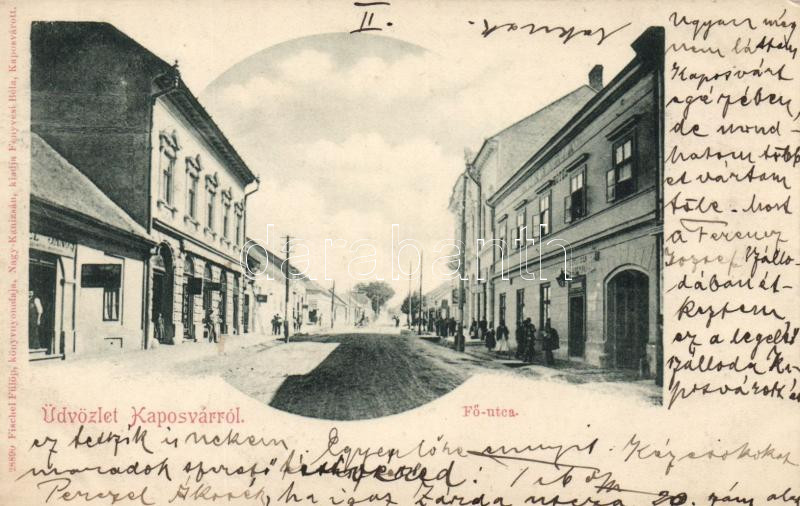 II
Ugyan még
nem láttam
Kaposvárt
egészében,
de mond-
hatom több-
et vártam
tőle. Most
a Ferencz
József szállo-
dában ét-
keztem,
ez a legelső
szálloda Ka-
posvárott és
Üdvözlet Kaposvárról.
Fő-utca.
28899 Fischel Fülöp, könyvnyomdája, Nagy-Kanizsán, kiadja Fenyvesi Béla, Kaposvárott.
darabanth
ez tetszik is nekem Egyenlőre ennyit. Kézcsókokat
maradok szerető
Perczel Ákosék, ha igaz Zárda utcza 20. szám